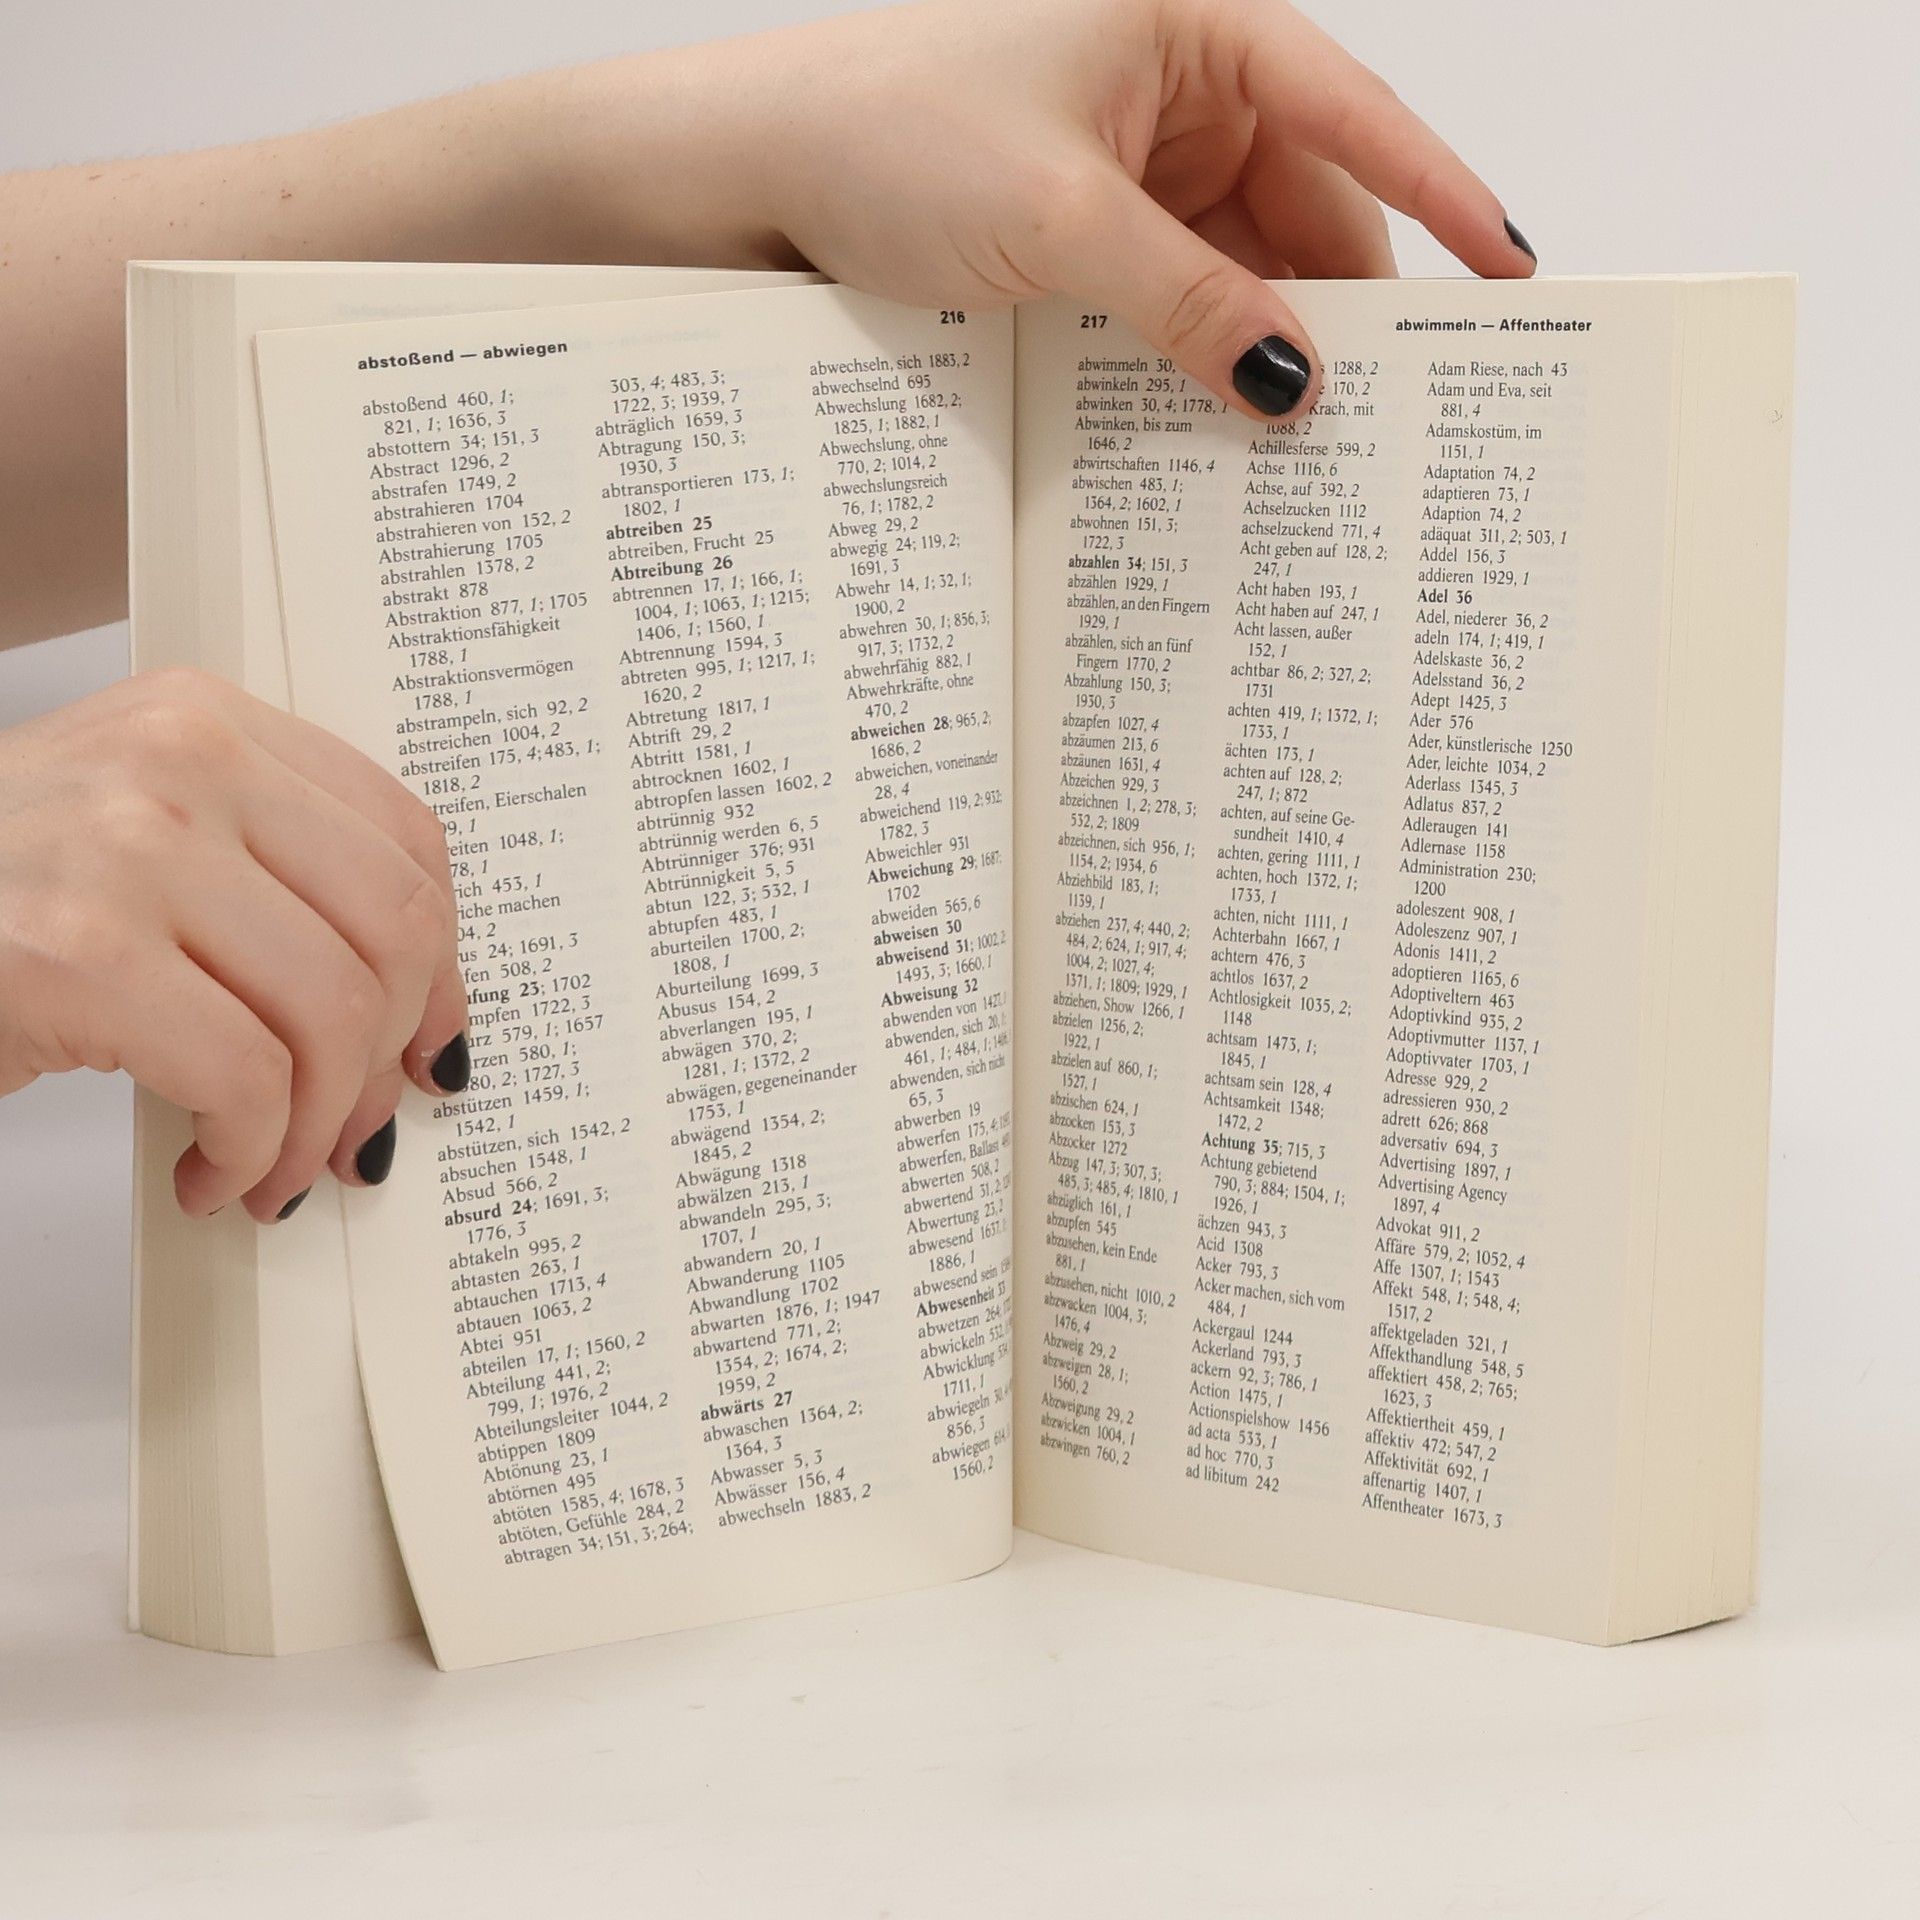 abstoßend — abwiegen
216
abstoßend 460, 1;
821, 1; 1636, 3
abstottern 34; 151, 3
Abstract 1296, 2
abstrafen 1749, 2
abstrahieren 1704
abstrahieren von 152, 2
Abstrahierung 1705
abstrahlen 1378, 2
abstrakt 878
Abstraktion 877, 1; 1705
Abstraktionsfähigkeit
1788, 1
Abstraktionsvermögen
1788, 1
abstrampeln, sich 92, 2
abstreichen 1004, 2
abstreifen 175, 4; 483, 1;
1818, 2
Eierschalen
1048, 1;
453, 1
machen
24; 1691, 3
508, 2
23; 1702
1722, 3
579, 1; 1657
580, 1;
2; 1727, 3
abstützen 1459, 1;
1542, 1
abstützen, sich 1542, 2
absuchen 1548, 1
Absud 566, 2
absurd 24; 1691, 3;
1776, 3
abtakeln 995, 2
abtasten 263, 1
abtauchen 1713, 4
abtauen 1063, 2
Abtei 951
abteilen 17, 1; 1560, 2
Abteilung 441, 2;
799, 1; 1976, 2
Abteilungsleiter 1044, 2
abtippen 1809
Abtönung 23, 1
abtörnen 495
abtöten 1585, 4; 1678, 3
abtöten, Gefühle 284, 2
abtragen 34; 151, 3; 264;
303, 4; 483, 3;
1722, 3; 1939, 7
abträglich 1659, 3
Abtragung 150, 3;
1930, 3
abtransportieren 173, 1;
1802, 1
abtreiben 25
abtreiben, Frucht 25
Abtreibung 26
abtrennen 17, 1; 166, 1;
1004, 1; 1063, 1; 1215;
1406, 1; 1560, 1
Abtrennung 1594, 3
abtreten 995, 1; 1217, 1;
1620, 2
Abtretung 1817, 1
Abtrift 29, 2
Abtritt 1581, 1
abtrocknen 1602, 1
abtropfen lassen 1602, 2
abtrünnig 932
abtrünnig werden 6, 5
Abtrünniger 376; 931
Abtrünnigkeit 5, 5
abtun 122, 3; 532, 1
abtupfen 483, 1
aburteilen 1700, 2;
1808, 1
Aburteilung 1699, 3
Abusus 154, 2
abverlangen 195, 1
abwägen 370, 2;
1281, 1; 1372, 2
abwägen, gegeneinander
1753, 1
abwägend 1354, 2;
1845, 2
Abwägung 1318
abwälzen 213, 1
abwandeln 295, 3;
1707, 1
abwandern 20, 1
Abwanderung 1105
Abwandlung 1702
abwarten 1876, 1; 1947
abwartend 771, 2;
1354, 2; 1674, 2;
1959, 2
abwärts 27
abwaschen 1364, 2;
1364, 3
Abwasser 5, 3
Abwässer 156, 4
abwechseln 1883, 2
abwechseln, sich 1883, 2
abwechselnd 695
Abwechslung 1682, 2;
1825, 1; 1882, 1
Abwechslung, ohne
770, 2; 1014, 2
abwechslungsreich
76, 1; 1782, 2
Abweg 29, 2
abwegig 24; 119, 2;
1691, 3
Abwehr 14, 1; 32, 1;
1900, 2
abwehren 30, 1; 856, 3;
917, 3; 1732, 2
abwehrfähig 882, 1
Abwehrkräfte, ohne
470, 2
abweichen 28; 965, 2;
1686, 2
abweichen, voneinander
28, 4
abweichend 119, 2; 932;
1782, 3
Abweichler 931
Abweichung 29; 1687;
1702
abweiden 565, 6
abweisen 30
abweisend 31; 1002, 2;
1493, 3; 1660, 1
Abweisung 32
abwenden von 1427,
abwenden, sich 20,
461, 1; 484, 1;
abwenden, sich nicht
65, 3
abwerben 19
abwerfen 175, 4;
abwerfen, Ballast
abwerten 508, 2
abwertend 31, 2;
Abwertung 23, 2
abwesend 1637,
1886, 1
abwesend sein
Abwesenheit 33
abwetzen 264,
abwickeln 532,
Abwicklung
1711, 1
abwiegeln 30,
856, 3
abwiegen
1560, 2
217
abwimmeln — Affentheater
abwimmeln 30,
abwinkeln 295, 1
abwinken 30, 4; 1778, 1
Abwinken, bis zum
1646, 2
abwirtschaften 1146, 4
abwischen 483, 1;
1364, 2; 1602, 1
abwohnen 151, 3;
1722, 3
abzahlen 34; 151, 3
abzählen 1929, 1
abzählen, an den Fingern
1929, 1
abzählen, sich an fünf
Fingern 1770, 2
Abzahlung 150, 3;
1930, 3
abzapfen 1027, 4
abzäumen 213, 6
abzäunen 1631, 4
Abzeichen 929, 3
abzeichnen 1, 2; 278, 3;
532, 2; 1809
abzeichnen, sich 956, 1;
1154, 2; 1934, 6
Abziehbild 183, 1;
1139, 1
abziehen 237, 4; 440, 2;
484, 2; 624, 1; 917, 4;
1004, 2; 1027, 4;
1371, 1; 1809; 1929, 1
abziehen, Show 1266, 1
abzielen 1256, 2;
1922, 1
abzielen auf 860, 1;
1527, 1
abzischen 624, 1
abzocken 153, 3
Abzocker 1272
Abzug 147, 3; 307, 3;
485, 3; 485, 4; 1810, 1
abzüglich 161, 1
abzupfen 545
abzusehen, kein Ende
881, 1
abzusehen, nicht 1010, 2
abzwacken 1004, 3;
1476, 4
Abzweig 29, 2
abzweigen 28, 1;
1560, 2
Abzweigung 29, 2
abzwicken 1004, 1
abzwingen 760, 2
1288, 2
170, 2
Krach, mit
1088, 2
Achillesferse 599, 2
Achse 1116, 6
Achse, auf 392, 2
Achselzucken 1112
achselzuckend 771, 4
Acht geben auf 128, 2;
247, 1
Acht haben 193, 1
Acht haben auf 247, 1
Acht lassen, außer
152, 1
achtbar 86, 2; 327, 2;
1731
achten 419, 1; 1372, 1;
1733, 1
ächten 173, 1
achten auf 128, 2;
247, 1; 872
achten, auf seine Ge-
sundheit 1410, 4
achten, gering 1111, 1
achten, hoch 1372, 1;
1733, 1
achten, nicht 1111, 1
Achterbahn 1667, 1
achtern 476, 3
achtlos 1637, 2
Achtlosigkeit 1035, 2;
1148
achtsam 1473, 1;
1845, 1
achtsam sein 128, 4
Achtsamkeit 1348;
1472, 2
Achtung 35; 715, 3
Achtung gebietend
790, 3; 884; 1504, 1;
1926, 1
ächzen 943, 3
Acid 1308
Acker 793, 3
Acker machen, sich vom
484, 1
Ackergaul 1244
Ackerland 793, 3
ackern 92, 3; 786, 1
Action 1475, 1
Actionspielshow 1456
ad acta 533, 1
ad hoc 770, 3
ad libitum 242
Adam Riese, nach 43
Adam und Eva, seit
881, 4
Adamskostüm, im
1151, 1
Adaptation 74, 2
adaptieren 73, 1
Adaption 74, 2
adäquat 311, 2; 503, 1
Addel 156, 3
addieren 1929, 1
Adel 36
Adel, niederer 36, 2
adeln 174, 1; 419, 1
Adelskaste 36, 2
Adelsstand 36, 2
Adept 1425, 3
Ader 576
Ader, künstlerische 1250
Ader, leichte 1034, 2
Aderlass 1345, 3
Adlatus 837, 2
Adleraugen 141
Adlernase 1158
Administration 230;
1200
adoleszent 908, 1
Adoleszenz 907, 1
Adonis 1411, 2
adoptieren 1165, 6
Adoptiveltern 463
Adoptivkind 935, 2
Adoptivmutter 1137, 1
Adoptivvater 1703, 1
Adresse 929, 2
adressieren 930, 2
adrett 626; 868
adversativ 694, 3
Advertising 1897, 1
Advertising Agency
1897, 4
Advokat 911, 2
Affäre 579, 2; 1052, 4
Affe 1307, 1; 1543
Affekt 548, 1; 548, 4;
1517, 2
affektgeladen 321, 1
Affekthandlung 548, 5
affektiert 458, 2; 765;
1623, 3
Affektiertheit 459, 1
affektiv 472; 547, 2
Affektivität 692, 1
affenartig 1407, 1
Affentheater 1673, 3